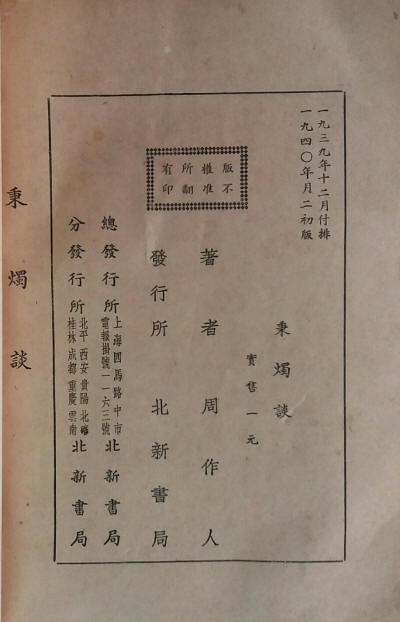 一九三九年十二月付排
一九四〇年月二初版
秉燭談
實售一元
版權所有
不准翻印
著者 周作人
發行所 北新書局
總發行所 上海四馬路中市 電報掛號一一六三號 北新書局
分發行所 北平 西安 貴陽 北碚 桂林 成都 重慶 雲南 北新書局
秉燭談